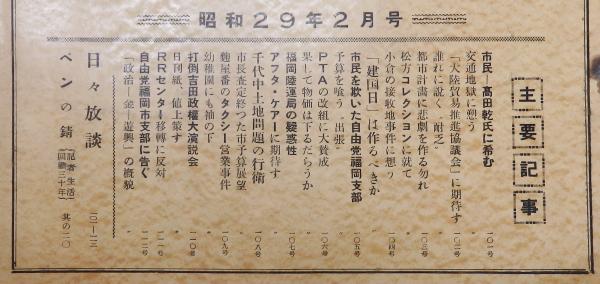 昭和29年2月号
主要記事
市民―高田乾氏に希む 一〇一号
交通地獄に憩う 〃
「大陸貿易推進協議会」に期待す 一〇二号
誰れに説く〝耐乏〟 〃
都市計画に悲劇を作る勿れ 一〇三号
松方コレクションに就て 〃
小倉の接收地事件に想う 一〇四号
「建国日」は作るべきか 〃
市民を欺いた自由党福岡支部 一〇五号
予算を喰う〝出張〟 〃
PTAの改組に大賛成 一〇六号
果して物価は下るだらうか 〃
福岡陸運局の疑惑性 一〇七号
アフタ・ケアーに期待す 〃
千代中土地問題の行衛 一〇八号
市長査定終つた市予算展望 〃
麹屋番のタクシー営業事件 一〇九号
幼稚園にも袖の下 〃
打倒吉田政権大演説会 一一〇号
日刊紙、値上策す 〃
RRセンター移轉に反対 一一一号
自由党福岡市支部に告ぐ 一一二号
「政治―金―遊興」の概貌 〃
日々放談 一〇一―一一二
ペンの錆 (記者生活回顧三十年) 其の二〇